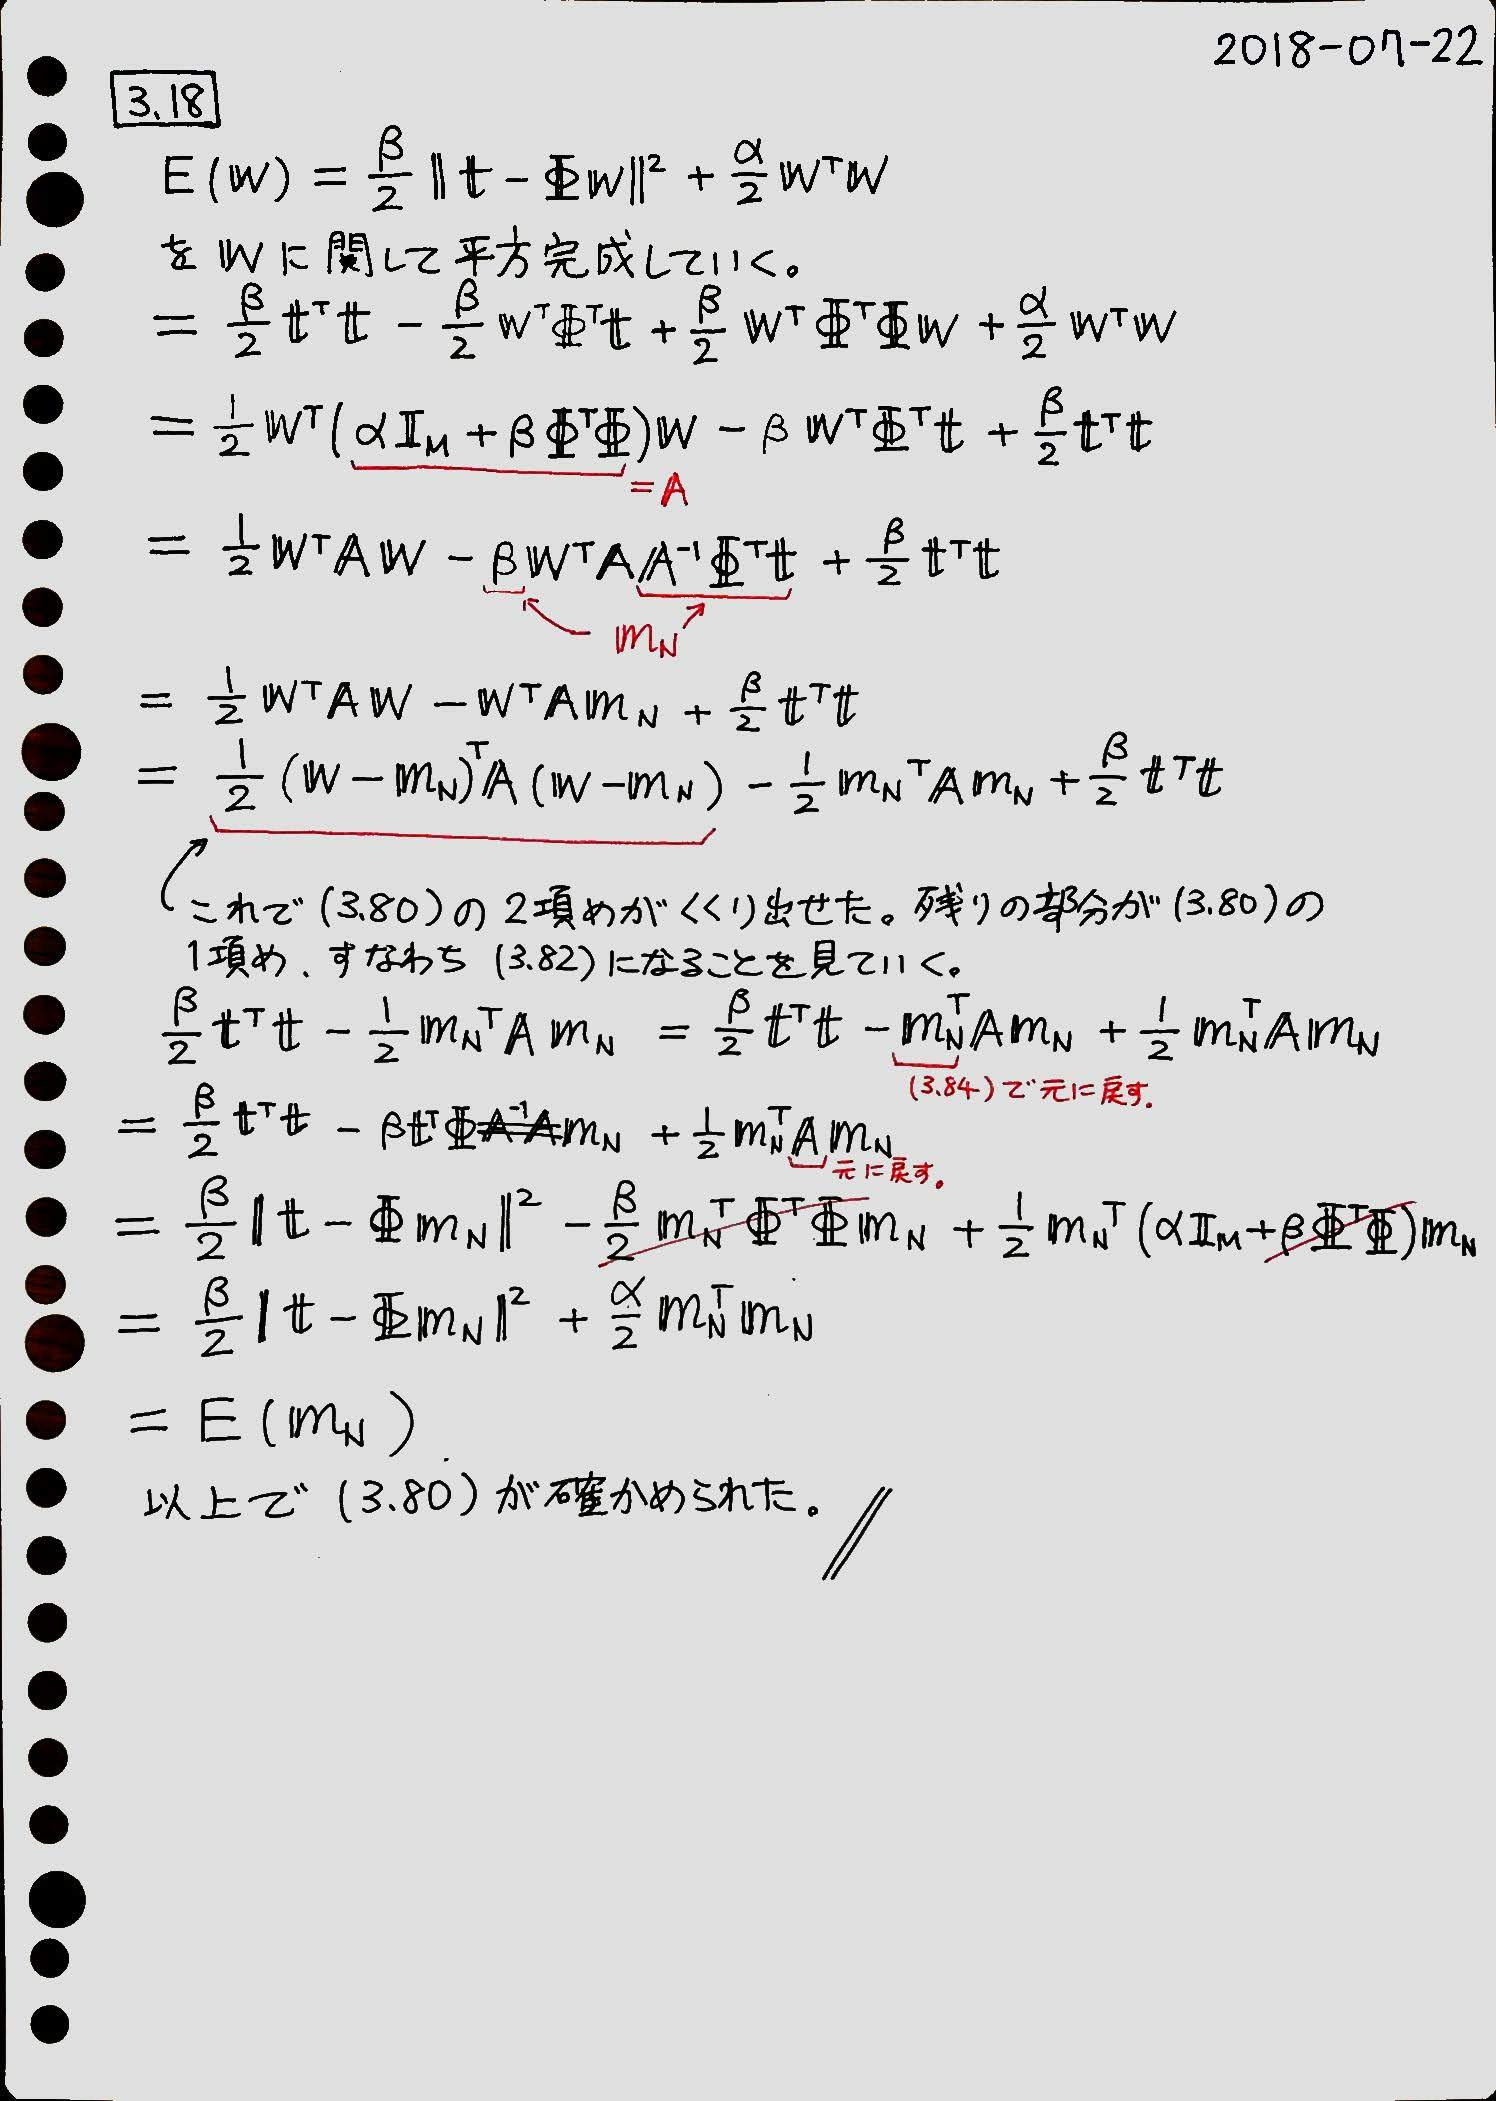 2018-07-22
3.18
E(w) = β/2 ‖t - Φw‖² + α/2 wᵀw
を w に関して平方完成していく。
= β/2 tᵀt - β/2 wᵀΦᵀt + β/2 wᵀΦᵀΦw + α/2 wᵀw
= 1/2 wᵀ(αI_M + βΦᵀΦ)w - β wᵀΦᵀt + β/2 tᵀt
= A
= 1/2 wᵀAw - βwᵀAA⁻¹Φᵀt + β/2 tᵀt
m_N
= 1/2 wᵀAw - wᵀAm_N + β/2 tᵀt
= 1/2 (w - m_N)ᵀA(w - m_N) - 1/2 m_NᵀAm_N + β/2 tᵀt
これで (3.80) の 2項めがくくり出せた。残りの部分が (3.80) の
1項め、すなわち (3.82) になることを見ていく。
β/2 tᵀt - 1/2 m_NᵀAm_N = β/2 tᵀt - m_NᵀAm_N + 1/2 m_NᵀAm_N
(3.84) で元に戻す.
= β/2 tᵀt - βtᵀΦA⁻¹Am_N + 1/2 m_NᵀAm_N
元に戻す。
= β/2 ‖t - Φm_N‖² - β/2 m_NᵀΦᵀΦm_N + 1/2 m_Nᵀ(αI_M + βΦᵀΦ)m_N
= β/2 ‖t - Φm_N‖² + α/2 m_Nᵀm_N
= E(m_N)
以上で (3.80) が確かめられた。//